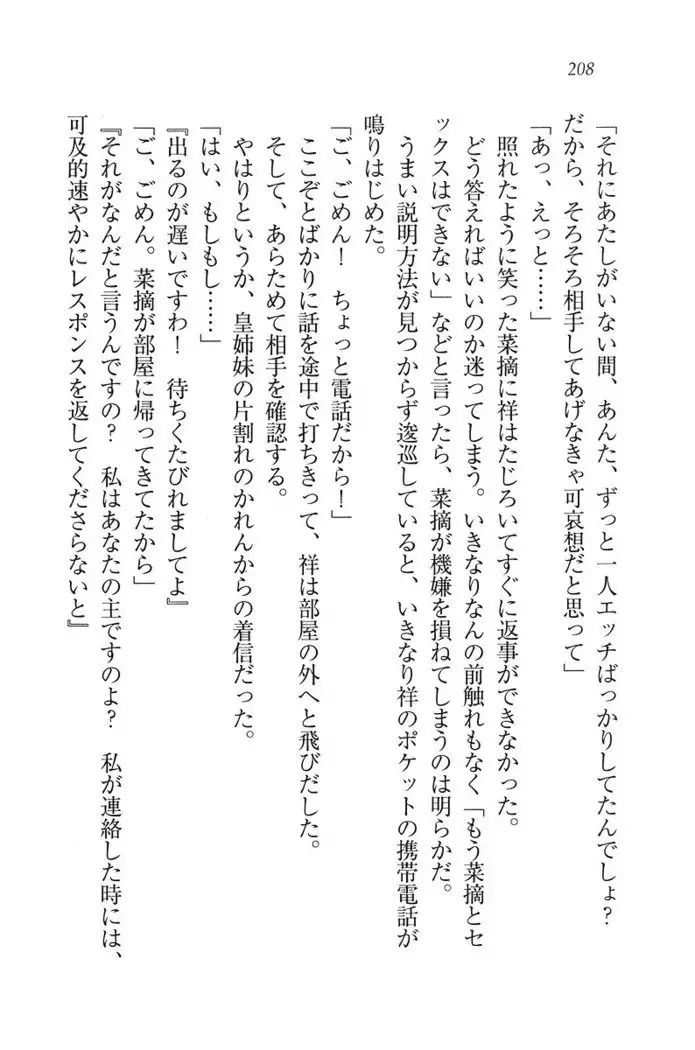 208
「それにあたしがいない間、あんた、ずっと一人エッチばっかりしてたんでしょ?
だから、そろそろ相手してあげなきゃ可哀想だと思って」
「あっ、えっと……」
照れたように笑った菜摘に祥はたじろいてすぐに返事ができなかった。
どう答えればいいのか迷ってしまう。いきなりなんの前触れもなく「もう菜摘とセ
ックスはできない」などと言ったら、菜摘が機嫌を損ねてしまうのは明らかだ。
うまい説明方法が見つからず逡巡していると、いきなり祥のポケットの携帯電話が
鳴りはじめた。
「ご、ごめん! ちょっと電話だから!」
ここぞとばかりに話を途中で打ちきって、祥は部屋の外へと飛びだした。
そして、あらためて相手を確認する。
やはりというか、皇姉妹の片割れのかれんからの着信だった。
「はい、もしもし……」
『出るのが遅いですわ! 待ちくたびれましてよ』
「ご、ごめん。菜摘が部屋に帰ってきてたから」
『それがなんだと言うんですの? 私はあなたの主ですのよ? 私が連絡した時には、
可及的速やかにレスポンスを返してくださらないと』